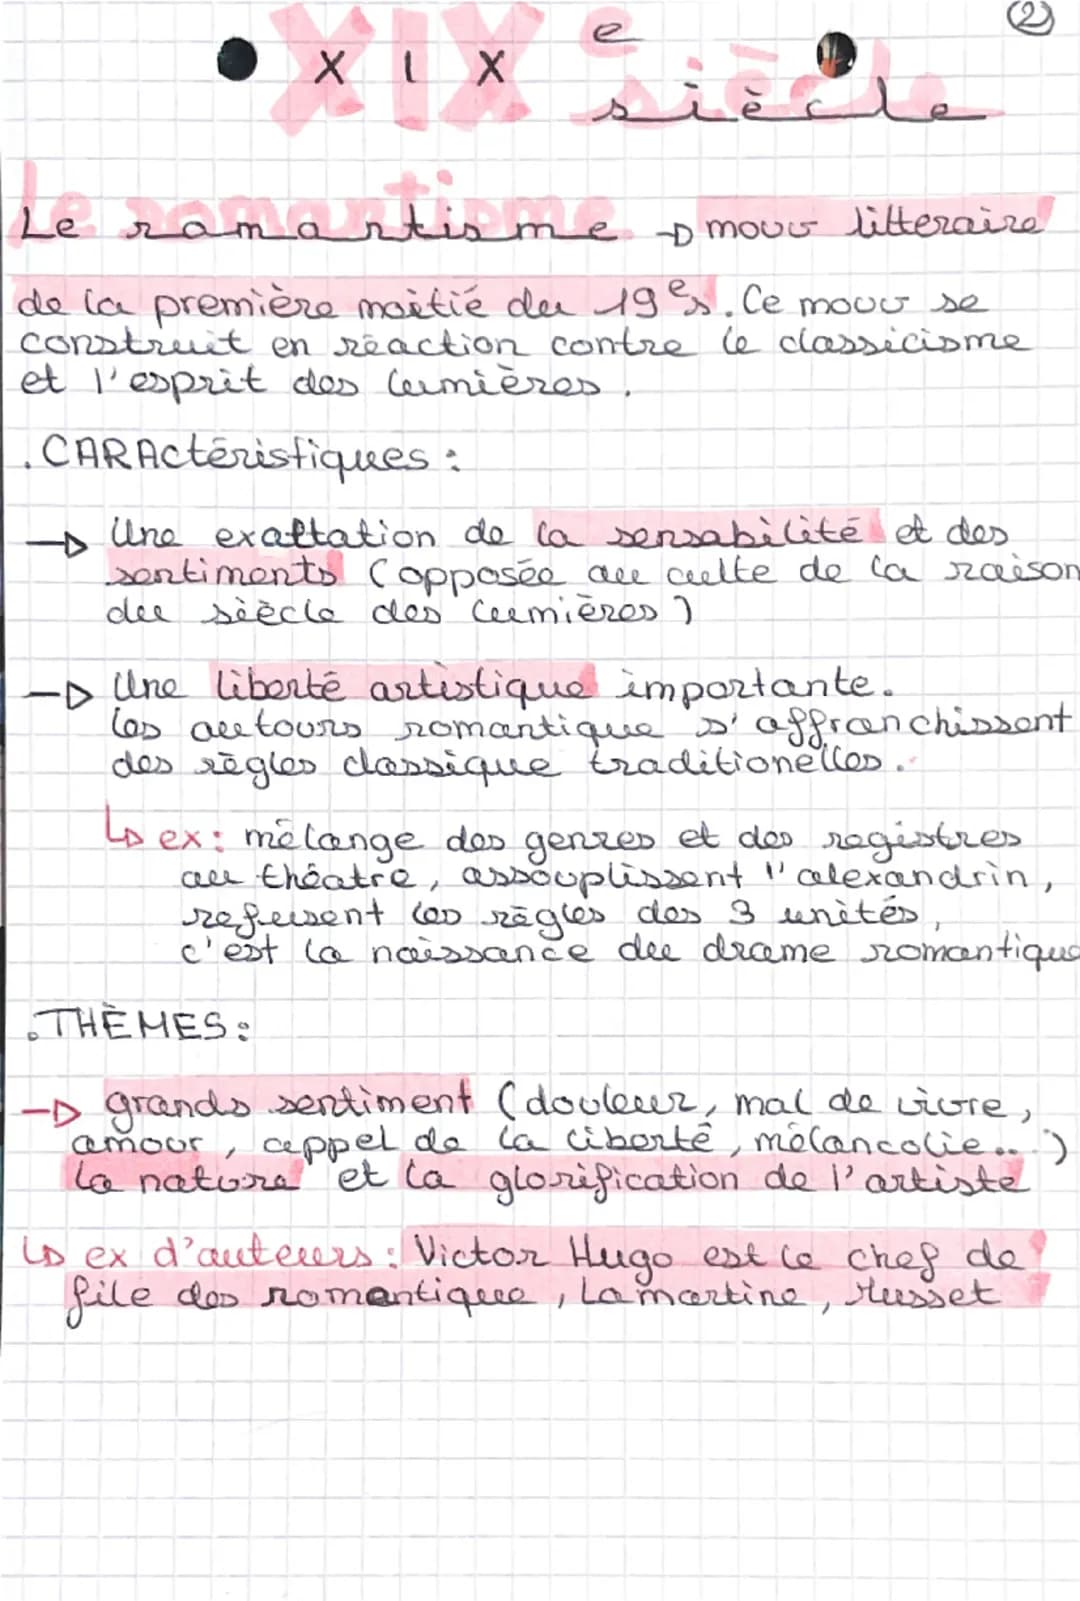 ②
XIXe siècle
Le romantisme → mouv litteraire
de la première moitié du 19es. Ce mouv se
construit en réaction contre le classicisme
et l'esprit des lumières.
. CARActéristiques :
→ Une exaltation de la sensabilité et des
sentiments (opposée au culte de la raison
du siècle des lumières)
→ Une liberté artistique importante.
les auteurs romantique s'affranchissent
des règles classique traditionelles.
↳ ex : mélange des genres et des registres
au théatre, assouplissent l'alexandrin,
refusent les règles des 3 unités,
c'est la naissance du drame romantique
. THÈMES :
→ grands sentiment (douleur, mal de vivre,
amour, appel de la liberté, mélancolie...)
la nature et la glorification de l'artiste
↳ ex d'auteurs : Victor Hugo est le chef de
file des romantique, Lamartine, Musset